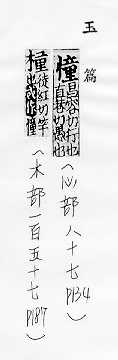 玉篇
憧昌容切行也直巷切愚也(心部八十七 P134)
橦徒紅切竿也或作(木部一百五十七 P187)